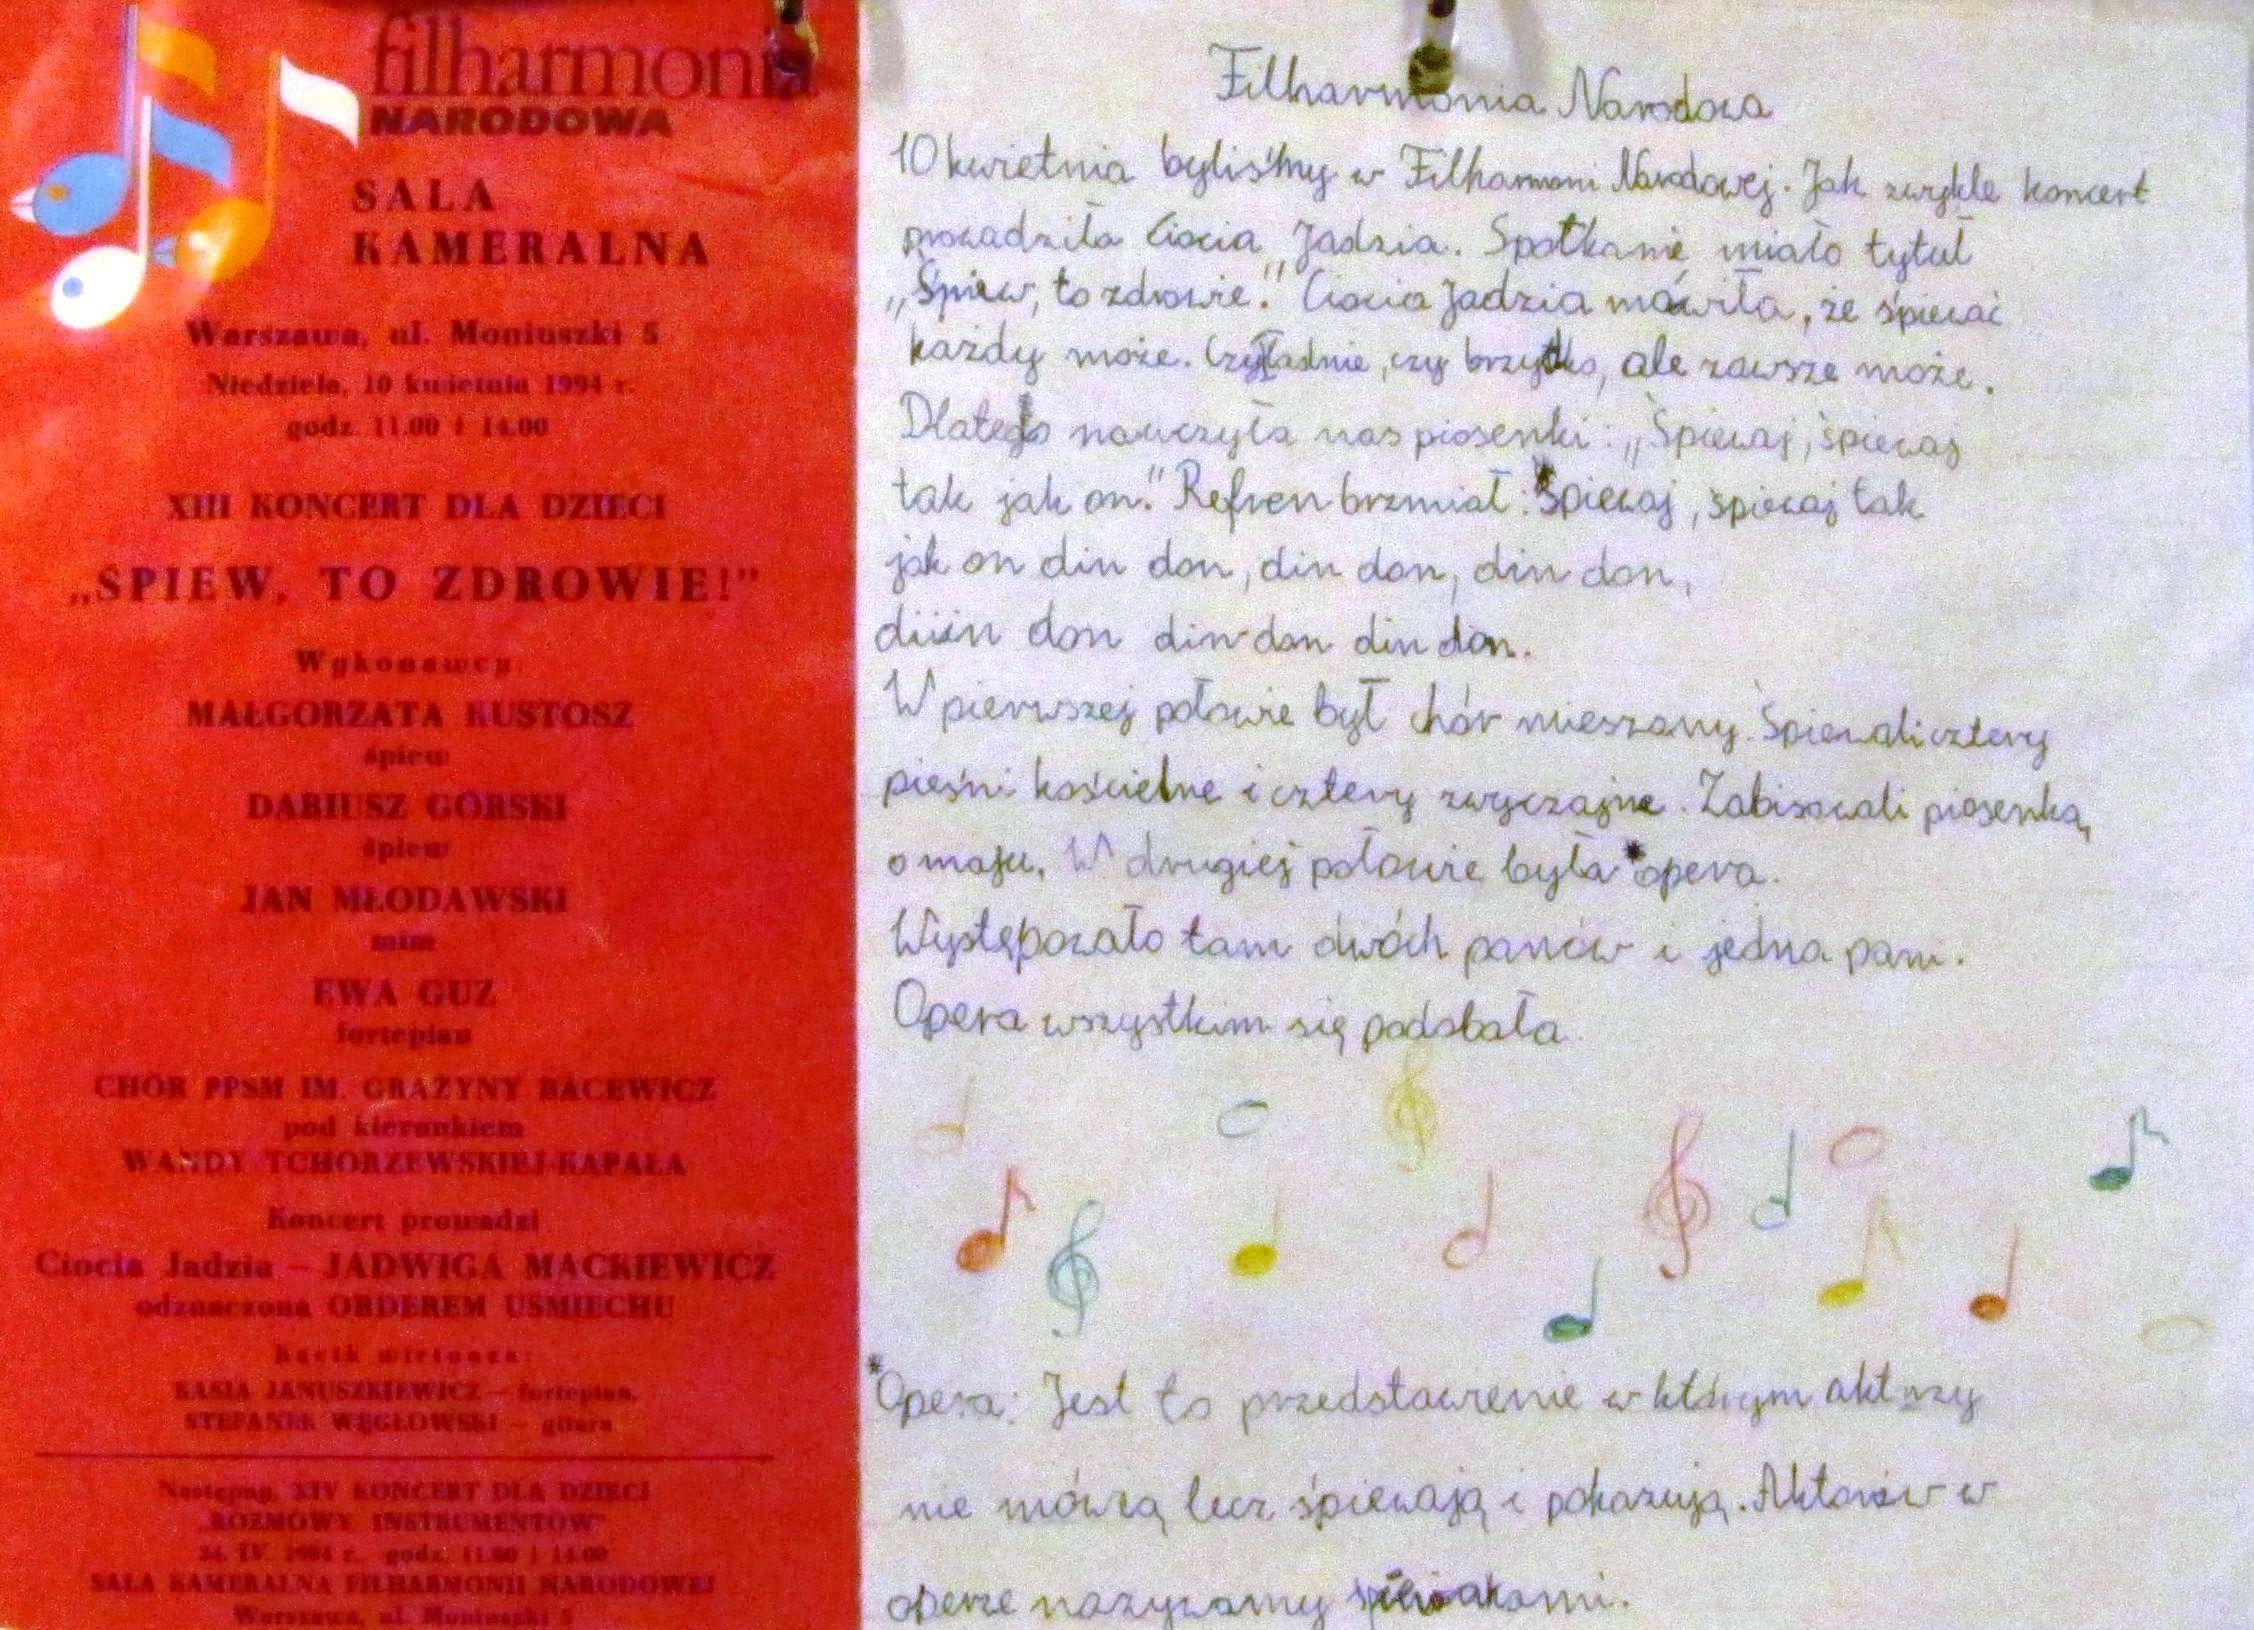 filharmonia
NARODOWA
SALA
KAMERALNA
Warszawa, ul. Moniuszki 5
Niedziela, 10 kwietnia 1994 r.
godz. 11.00 i 14.00
XIII KONCERT DLA DZIECI
„ŚPIEW, TO ZDROWIE!"
Wykonawcy:
MAŁGORZATA KUSTOSZ
śpiew
DARIUSZ GÓRSKI
śpiew
JAN MŁODAWSKI
mim
EWA GUZ
fortepian
CHÓR PPSM IM. GRAŻYNY BACEWICZ
pod kierunkiem
WANDY TCHÓRZEWSKIEJ-KAPAŁA
Koncert prowadzi
Ciocia Jadzia – JADWIGA MACKIEWICZ
odznaczona ORDEREM UŚMIECHU
Kącik wirtuoza:
KASIA JANUSZKIEWICZ – fortepian,
STEFANEK WĘGŁOWSKI – gitara
Następny, XIV KONCERT DLA DZIECI
„ROZMOWY INSTRUMENTÓW"
24 IV. 1994 r. godz. 11.00 i 14.00
SALA KAMERALNA FILHARMONII NARODOWEJ
Warszawa, ul. Moniuszki 5
Filharmonia Narodowa
10 kwietnia byliśmy w Filharmoni Narodowej. Jak zwykle koncert
prowadziła Ciocia Jadzia. Spotkanie miało tytuł
„Śpiew, to zdrowie." Ciocia Jadzia mówiła, że śpiewać
każdy może. Czy ładnie, czy brzydko, ale zawsze może.
Dlatego nauczyła nas piosenki: „Śpiewaj, śpiewaj
tak jak on." Refren brzmiał: Śpiewaj, śpiewaj tak
jak on din don, din don, din don,
diiin don din don din don.
W pierwszej połowie był chór mieszany. Śpiewali cztery
pieśni kościelne i cztery zwyczajne. Zabisowali piosenką
o maju. W drugiej połowie była *opera.
Występowało tam dwóch panów i jedna pani.
Opera wszystkim się podobała.
*Opera: Jest to przedstawienie w którym aktorzy
nie mówią lecz śpiewają i pokazują. Aktorów w
operze nazywamy śpiewakami.